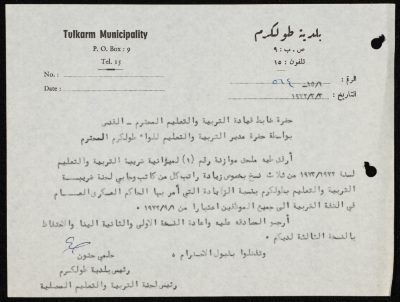 Tulkarm Municipality
P. O. Box : 9
Tel. 15
No. :
Date :
بلدية طولكرم
ص . ب : ٩
تلفون : ١٥
الرقم :
التاريخ :
حضرة ضابط قيادة التربية والتعليم المحترم - القدس
بواسطة حضرة مدير التربية والتعليم للواء طولكرم المحترم
أرفق طيه ملحق موازنة رقم (١) لميزانية ضريبة التربية والتعليم
لسنة ١٩٧٣/١٩٧٢ من ثلاث نسخ بخصوص زيادة راتب كل من كاتب وجابي لجنة ضريبة
التربية والتعليم بطولكرم بنسبة الزيادة التي أمر بها الحاكم العسكري العام
في الضفة الغربية الى جميع الموظفين اعتبارا من
أرجو المصادقة عليه واعادة النسخة الاولى والثانية الينا والاحتفاظ
بالنسخة الثالثة لديكم .
وتفضلوا بقبول الاحترام ،
حلمي حنون
رئيس بلدية طولكرم
رئيس لجنة التربية والتعليم المحلية